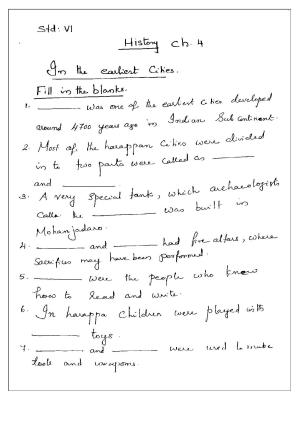 Std: VI
History Ch. 4
In the earliest Cities.
Fill in the blanks.
1. ______ was one of the earliest cities developed
around 4700 years ago in Indian Subcontinent.
2. Most of the harappan Cities were divided
in to two parts were called as ______
and ______.
3. A very special tank, which archaeologists
Calls the ______ was built in
Mohanjadaro.
4. ______ and ______ had fire altars, where
Sacrifies may have been performed.
5. ______ were the people who know
how to Read and write.
6. In harappa Children were played with
______ toys.
7. ______ and ______ were used to make
tools and weapons.